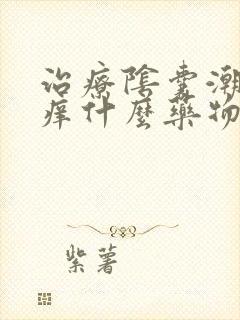 治療陰囊潮
痒什麼藥物
紫薯